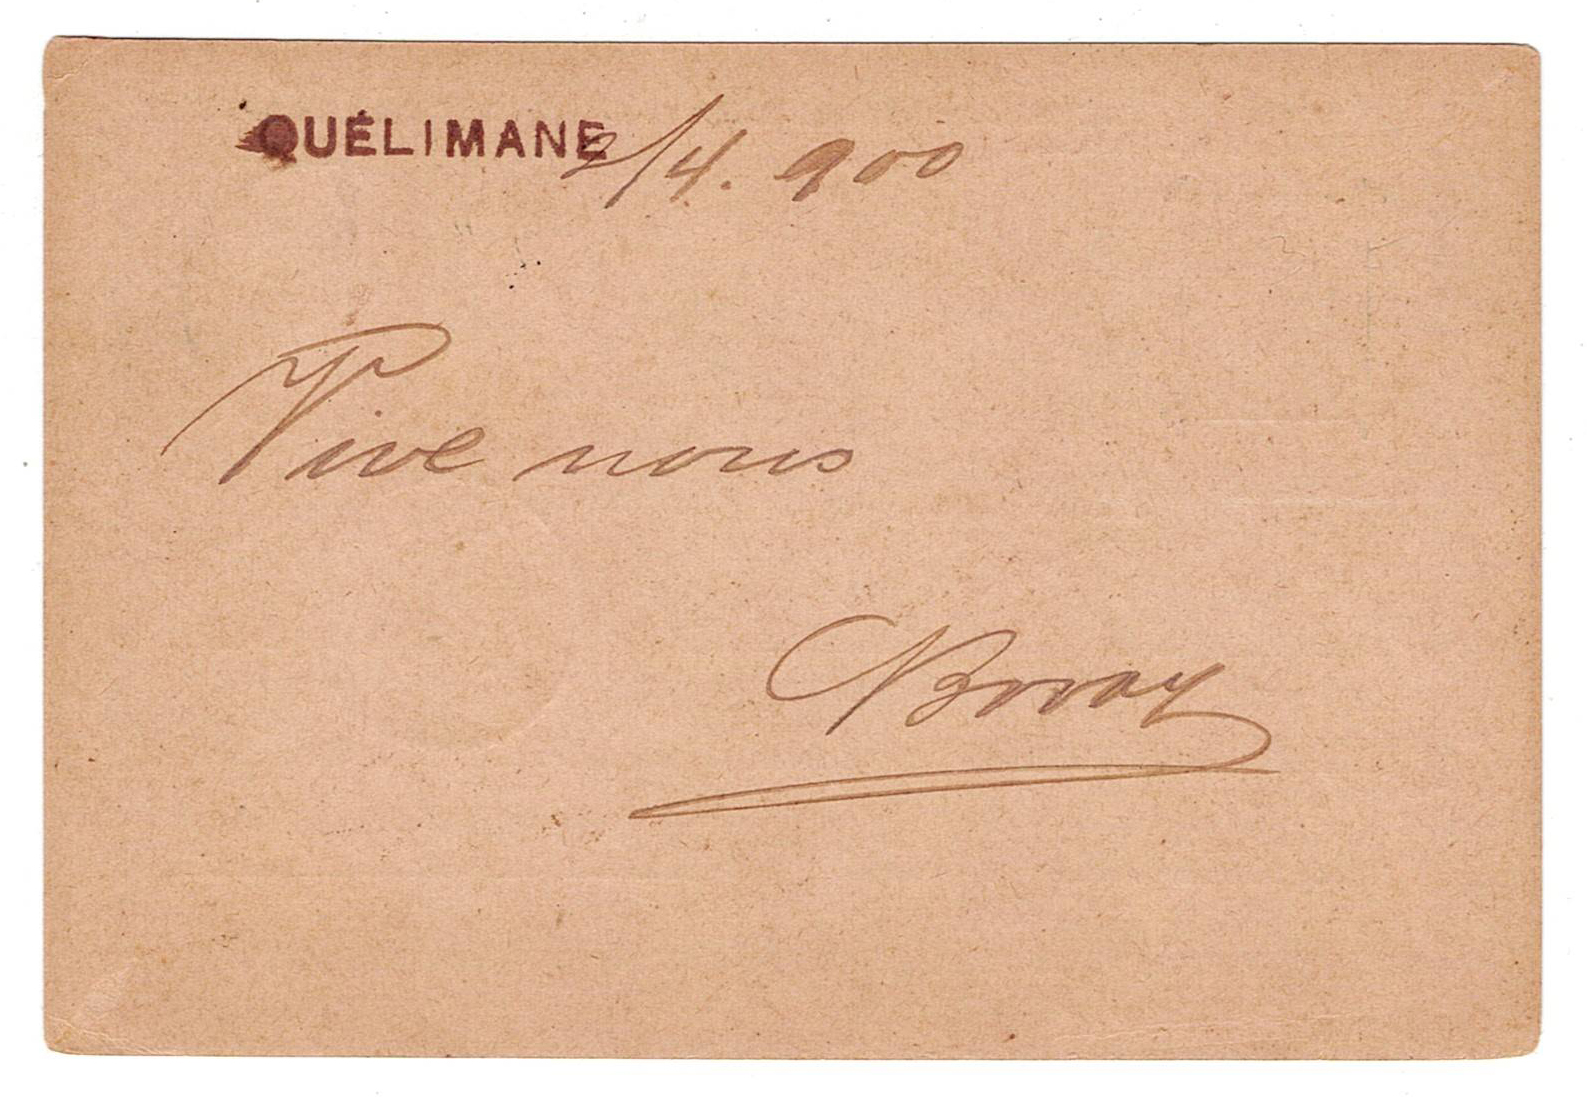 QUÉLIMANE 2/4. 900
Vive nous
Bovay